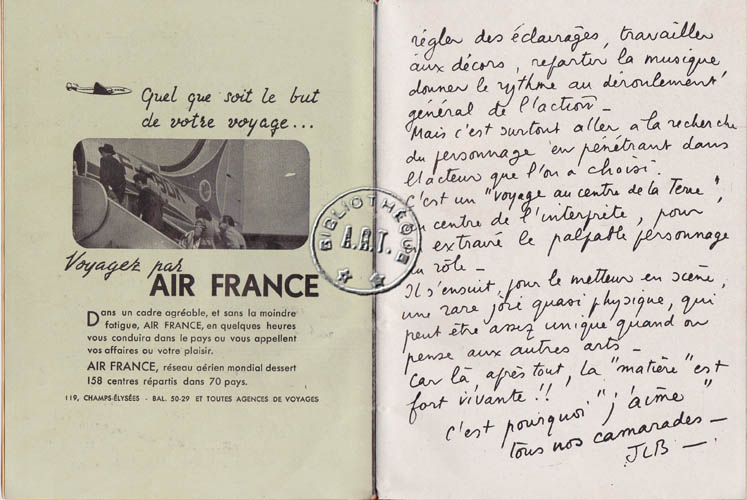 Quel que soit le but
de votre voyage...
Voyagez par
AIR FRANCE
Dans un cadre agréable, et sans la moindre
fatigue, AIR FRANCE, en quelques heures
vous conduira dans le pays ou vous appellent
vos affaires ou votre plaisir.
AIR FRANCE, réseau aérien mondial dessert
158 centres répartis dans 70 pays.
119, CHAMPS-ÉLYSÉES - BAL. 50-29 ET TOUTES AGENCES DE VOYAGES
BIBLIOTHÈQUE
A.R.T.
régler des éclairages, travailler
aux décors, répartir la musique
donner le rythme au déroulement
général de l'action -
Mais c'est surtout aller à la recherche
du personnage en pénétrant dans
l'acteur que l'on a choisi.
C'est un "voyage au centre de la Terre",
au centre de l'interprète, pour
extraire le palpable personnage
du rôle -
Il s'ensuit, pour le metteur en scène,
une rare joie quasi physique, qui
peut être assez unique quand on
pense aux autres arts -
Car là, après tout, la "matière" est
fort vivante !!
C'est pourquoi "j'aime"
tous nos camarades -
JLB -